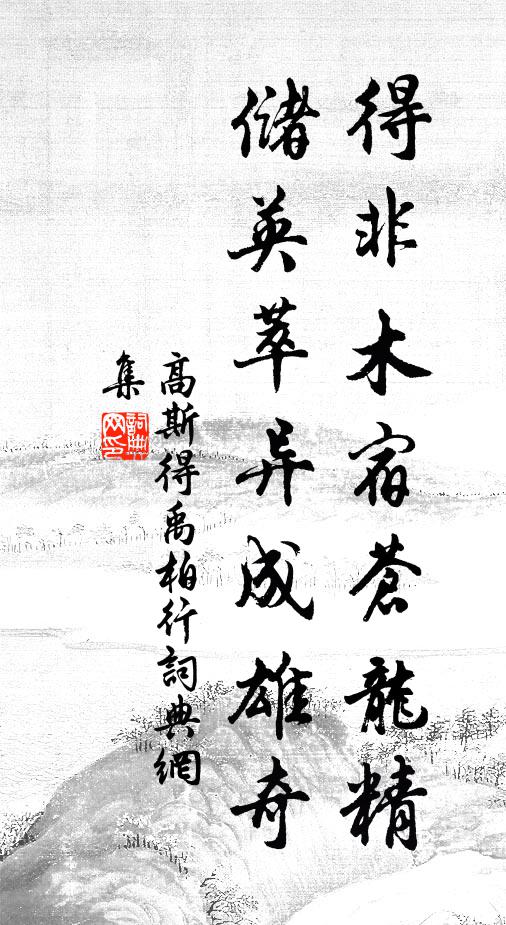 得非木宿蒼龍精
儲英萃异成雄奇
高斯得禹柏行詞典網
集
詞典網